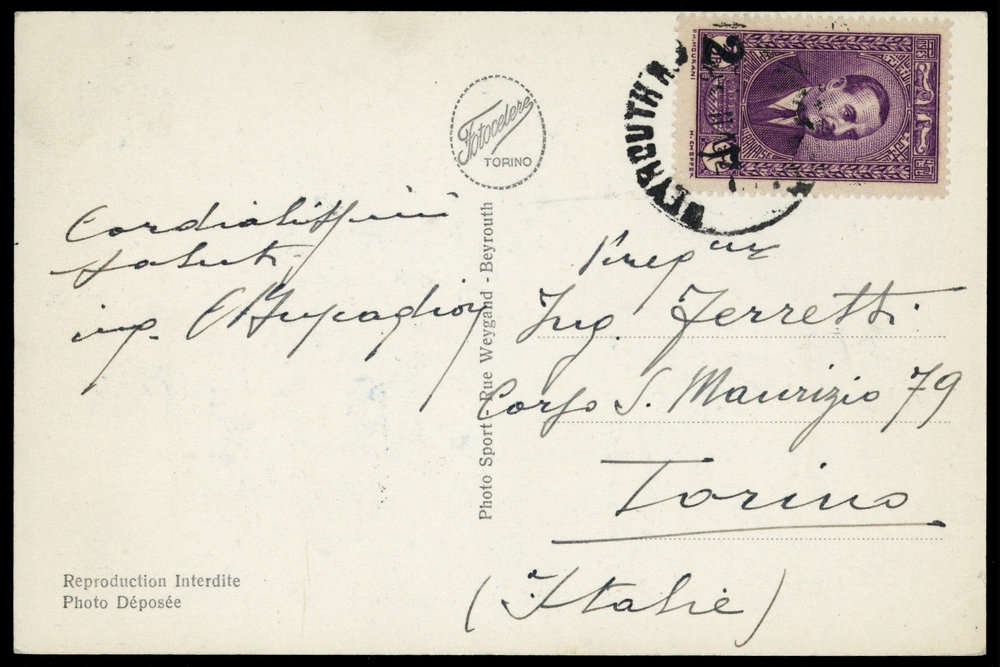 Fotocelere
TORINO
BEYROUTH R.P
2
H. CHEFFER
Cordialissimi
saluti
ing.
Photo Sport - Rue Weygand - Beyrouth
Preg mo
Ing. Ferretti
Corso S. Maurizio 79
Torino
(Italie)
Reproduction Interdite
Photo Déposée